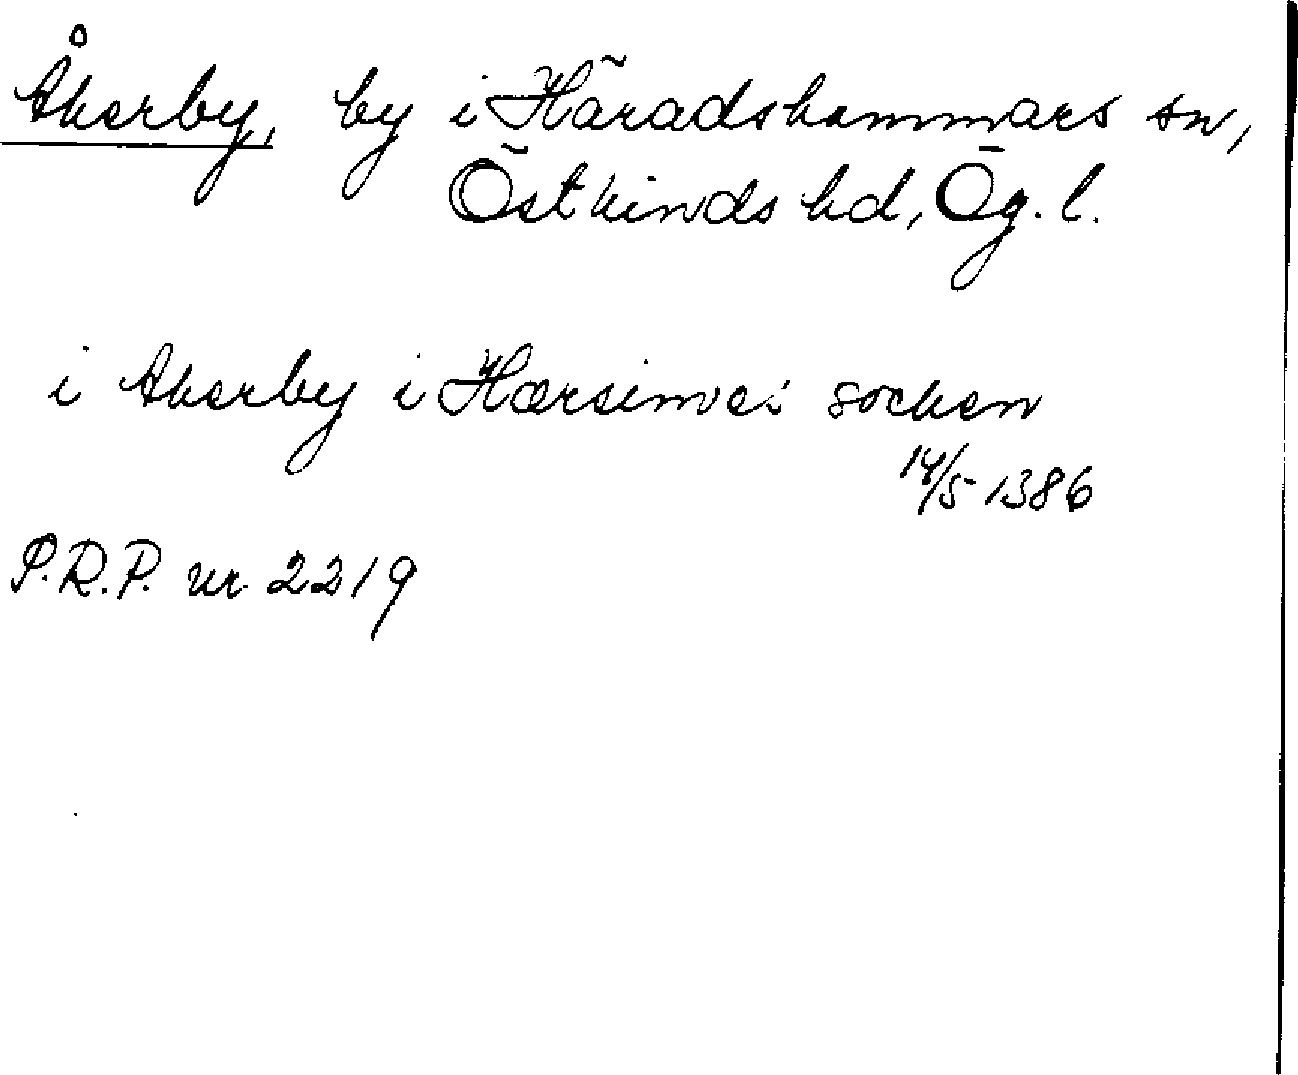 Åkerby, by i Häradshammars sn,
Östkinds hd, Ög. l.
i Akerby i Hærsimæ socken
14/5 1386
P.R.P. nr. 2219